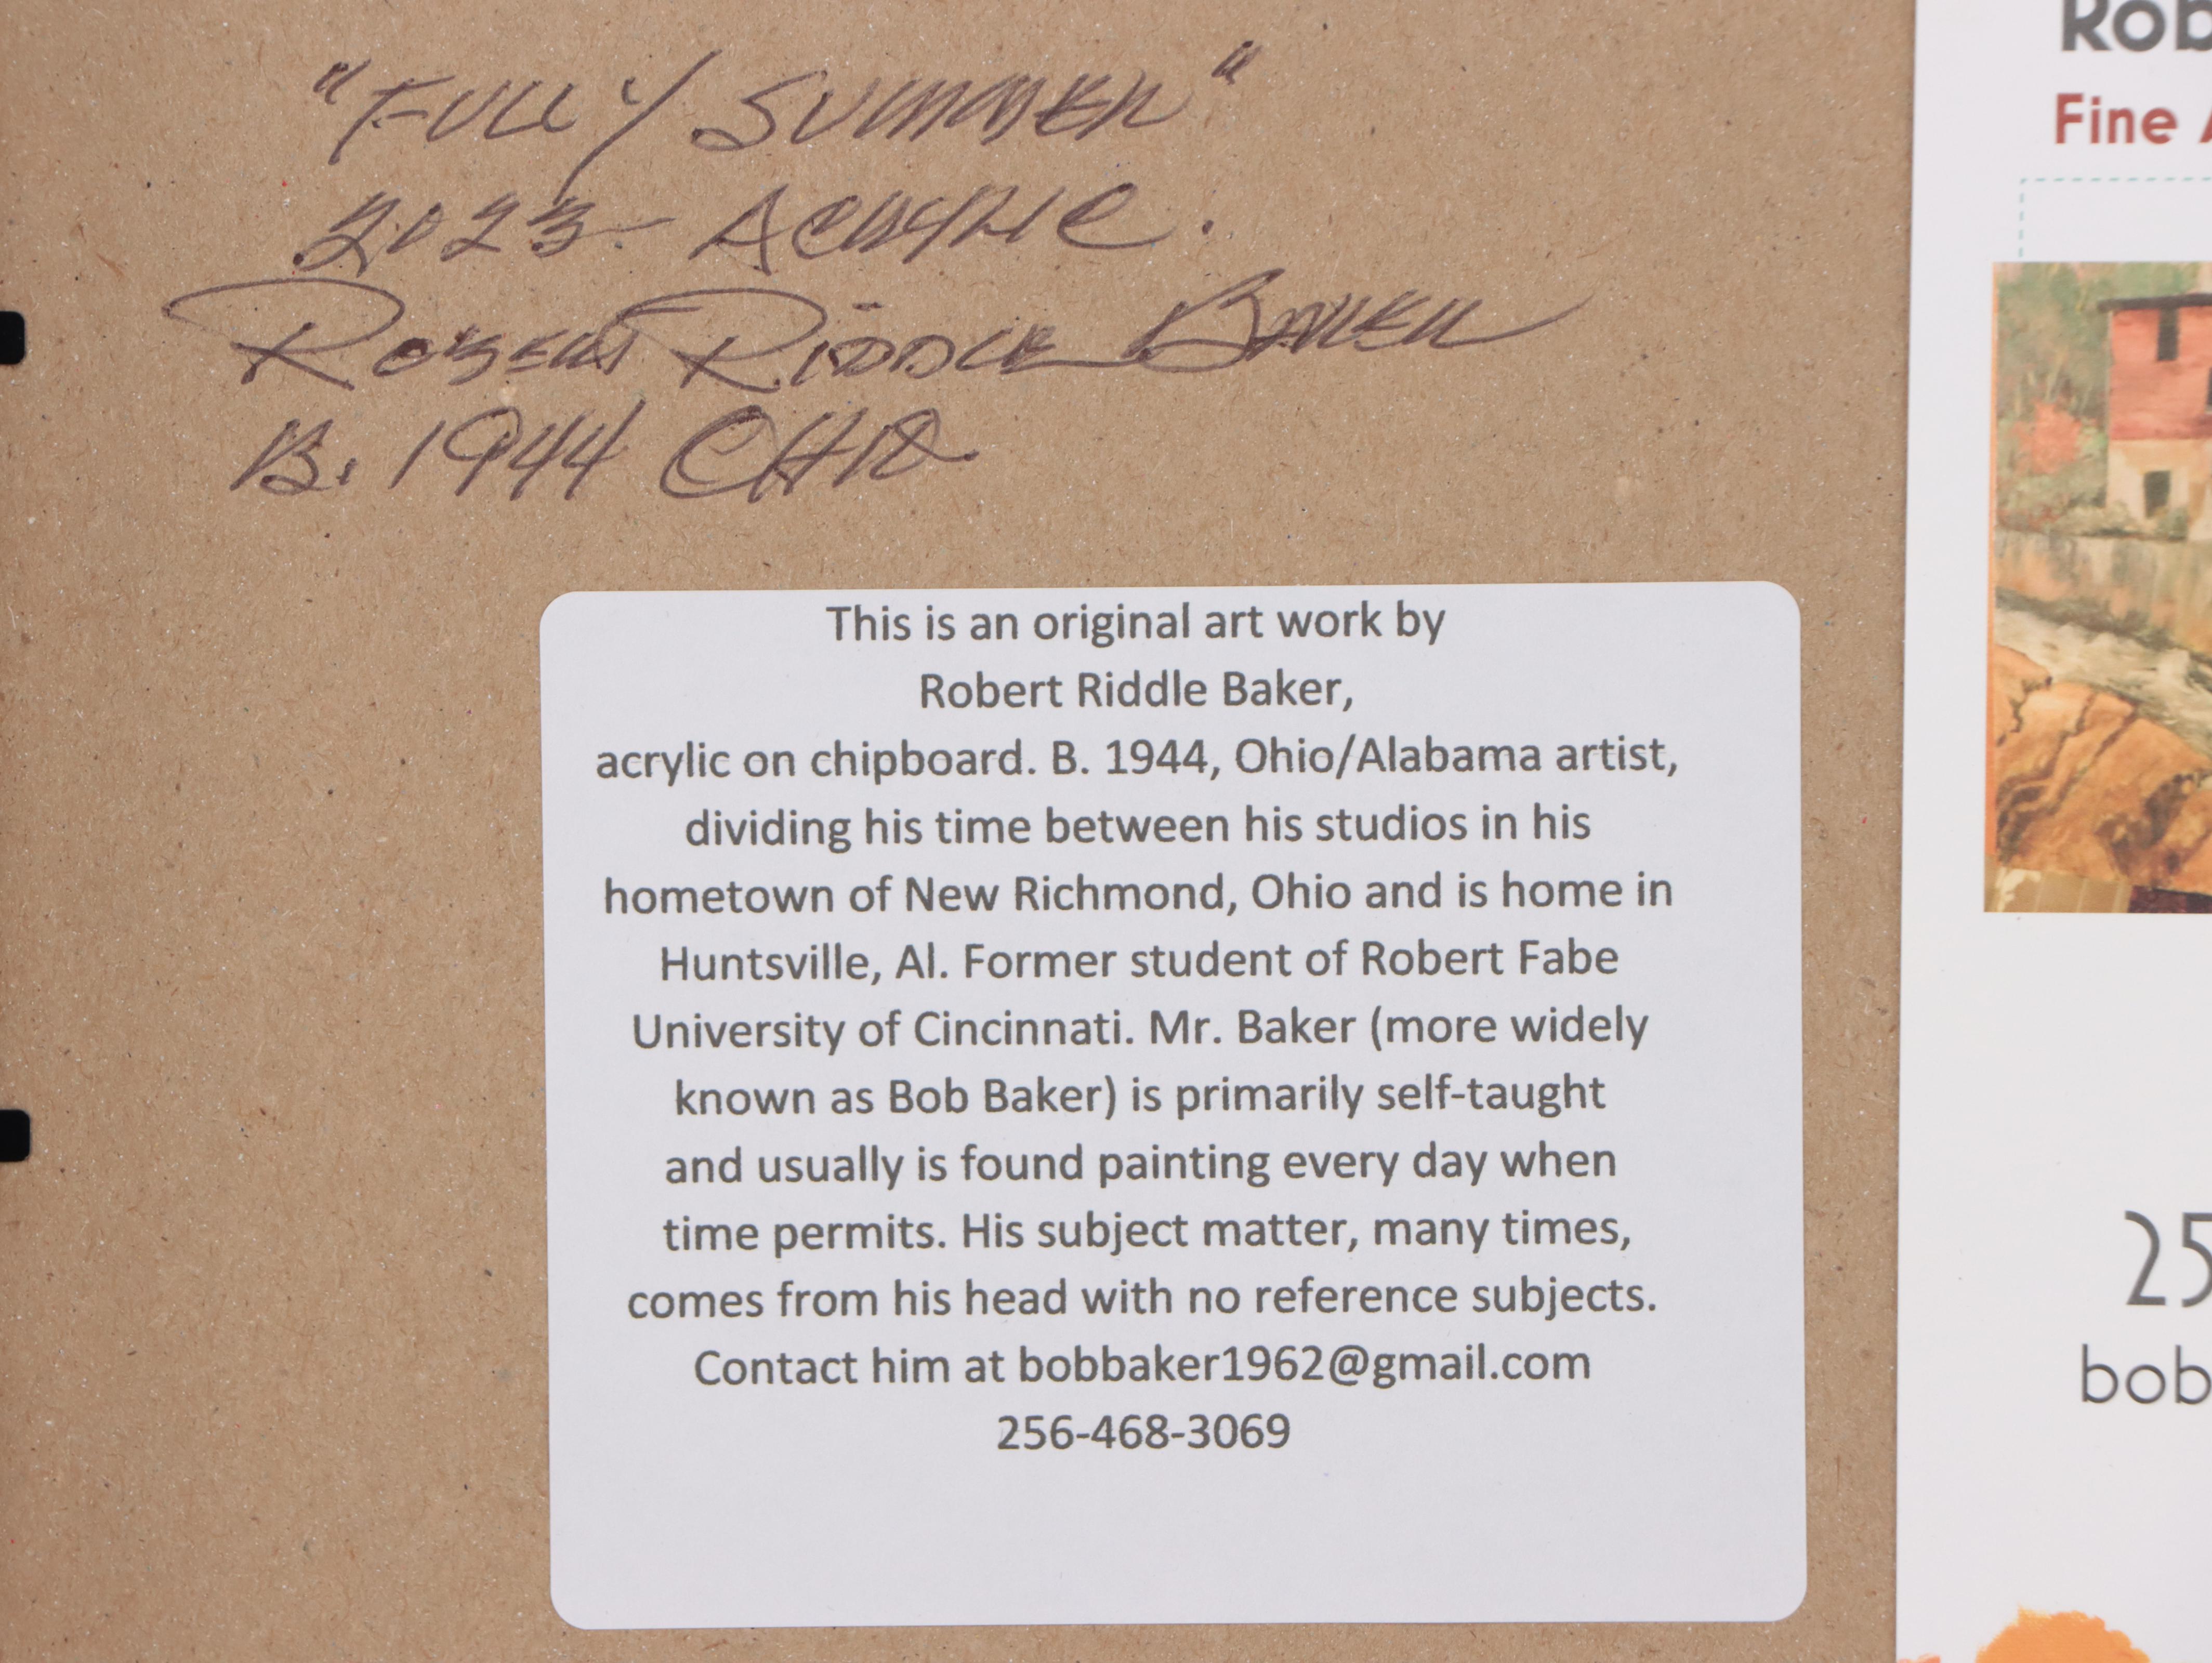 "FULLY SUMMER"
2023- ACRYLIC.
ROBERT RIDDLE BAKER
B. 1944 OHIO
This is an original art work by
Robert Riddle Baker,
acrylic on chipboard. B. 1944, Ohio/Alabama artist,
dividing his time between his studios in his
hometown of New Richmond, Ohio and is home in
Huntsville, Al. Former student of Robert Fabe
University of Cincinnati. Mr. Baker (more widely
known as Bob Baker) is primarily self-taught
and usually is found painting every day when
time permits. His subject matter, many times,
comes from his head with no reference subjects.
Contact him at bobbaker1962@gmail.com
256-468-3069
Rob
Fine A
25
bob